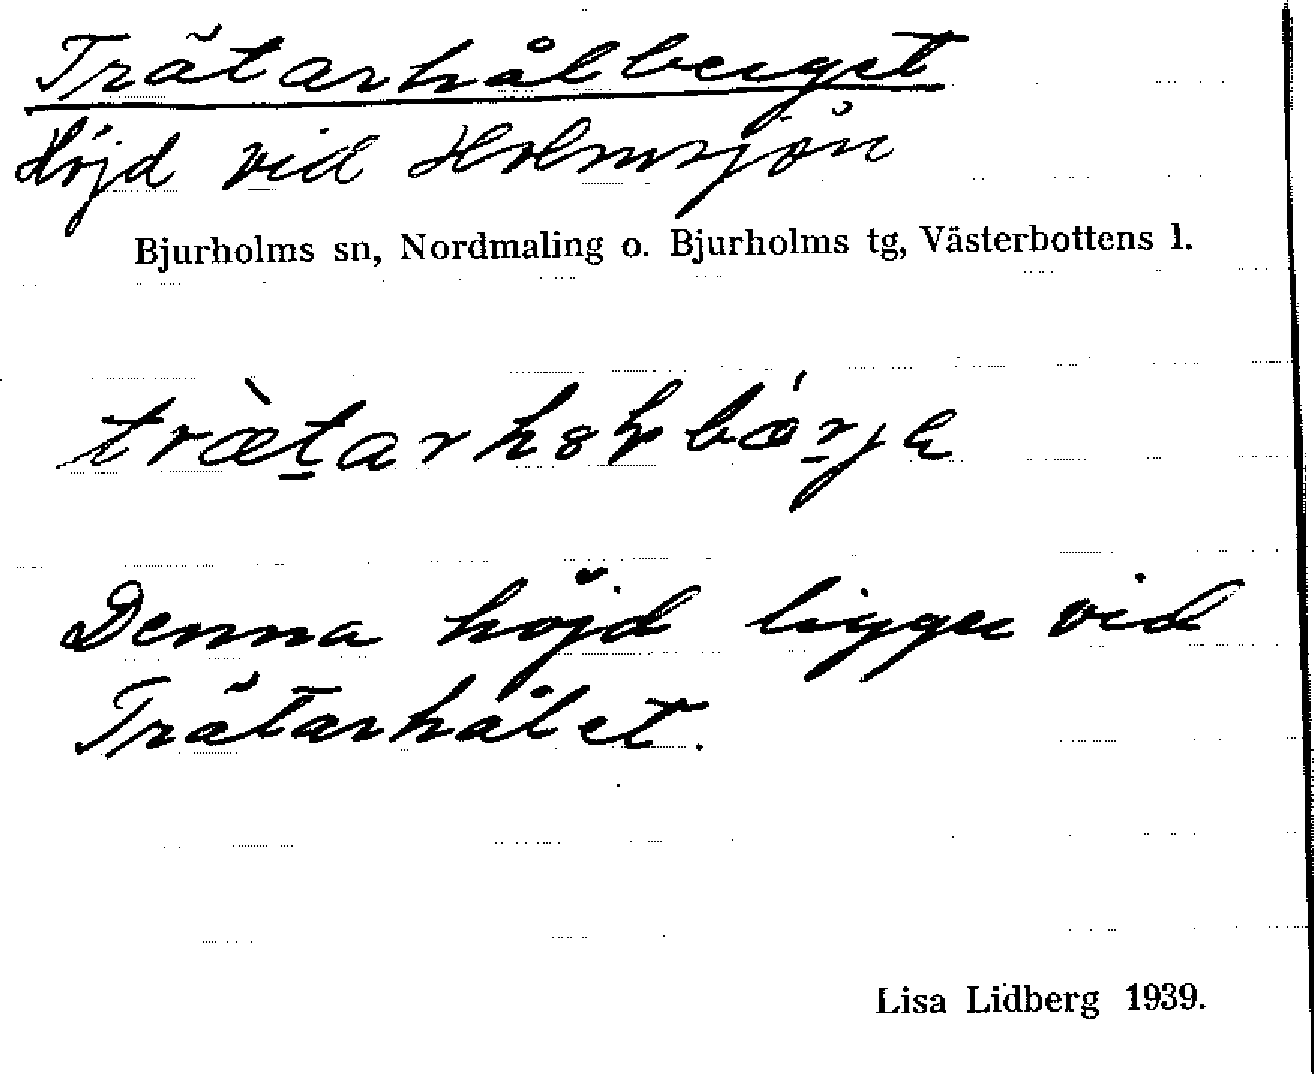 Trätarhålberget
Höjd vid Holmsjön
Bjurholms sn, Nordmaling o. Bjurholms tg, Västerbottens l.
Denna höjd ligger vid
Trätarhålet.
Lisa Lidberg 1939.